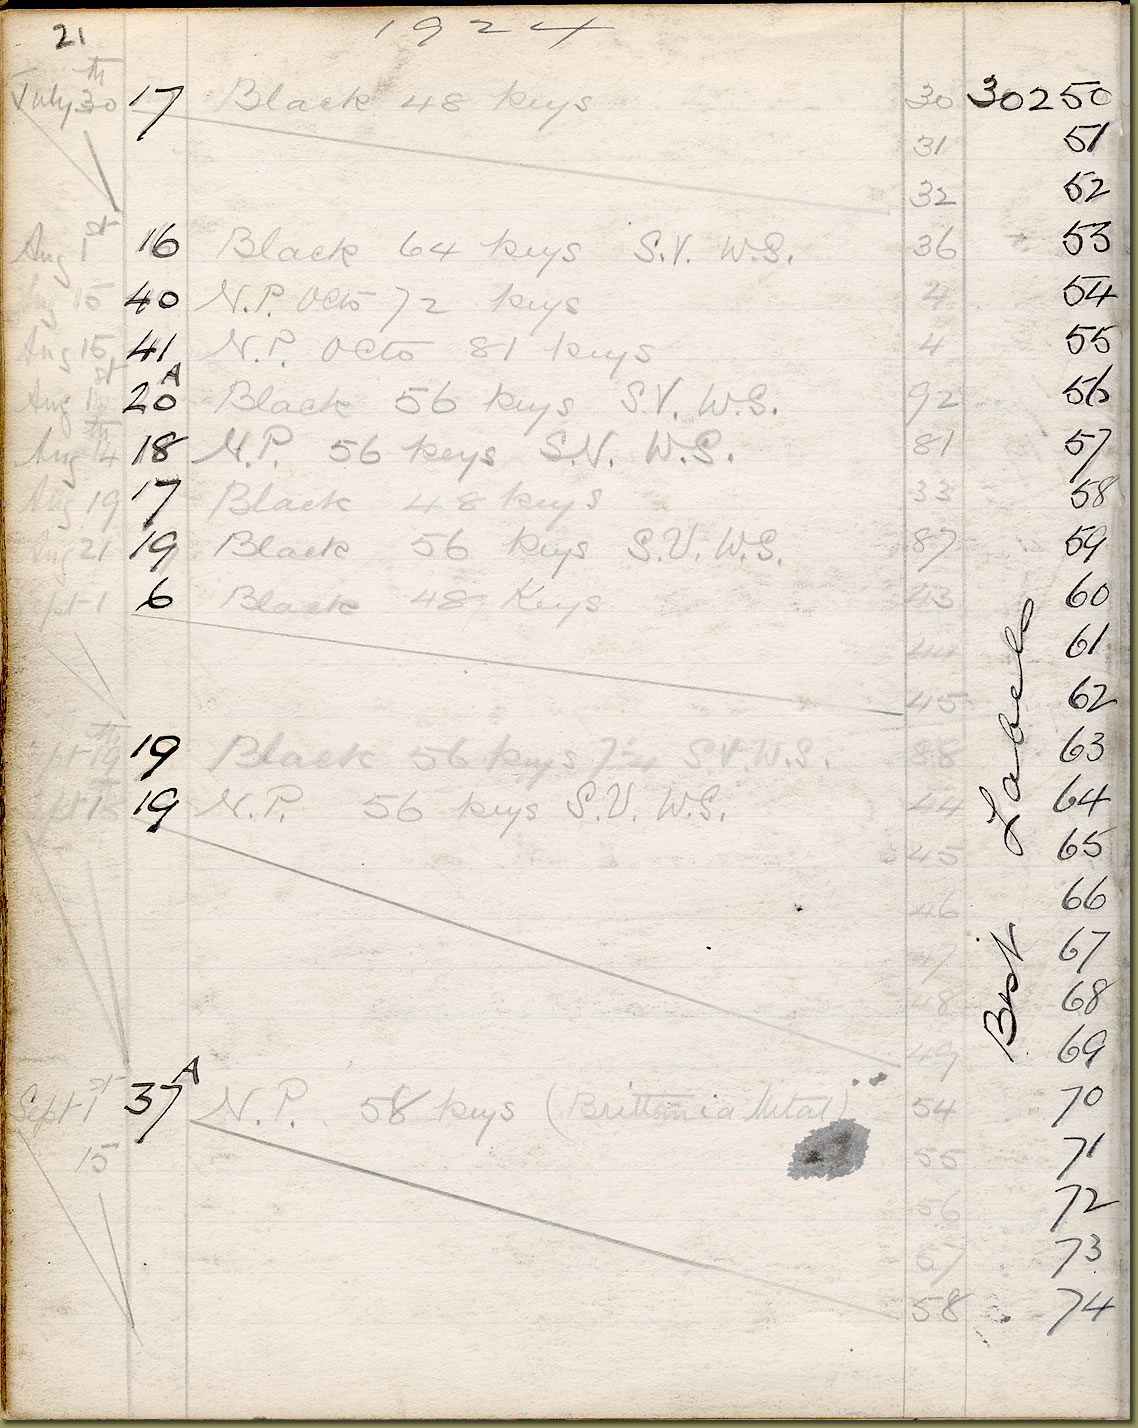 21 1924
July 30th 17 Black 48 keys 30 30250
31 51
32 52
Aug 1st 16 Black 64 keys S.V. W.S. 36 53
Aug 15 40 N.P. Octo 72 keys 4 54
Aug 15 41 N.P. Octo 81 keys 4 55
Aug 1st 20A Black 56 keys S.V. W.S. 92 56
Aug 14th 18 N.P. 56 keys S.V. W.S. 81 57
Aug 19 17 Black 48 keys 33 58
Aug 21 19 Black 56 keys S.V. W.S. 87 59
Sept 1 6 Black 48 Keys 43 60
44 61
45 62
Sept 19th 19 Black 56 keys S.V. W.S. 88 63
Sept 19 N.P. 56 keys S.V. W.S. 44 64
45 65
46 66
47 67
48 68
49 69
Best Labels
Sept 1st 37A N.P. 58 keys (Brittania Metal) 54 70
15 55 71
56 72
57 73
58 74